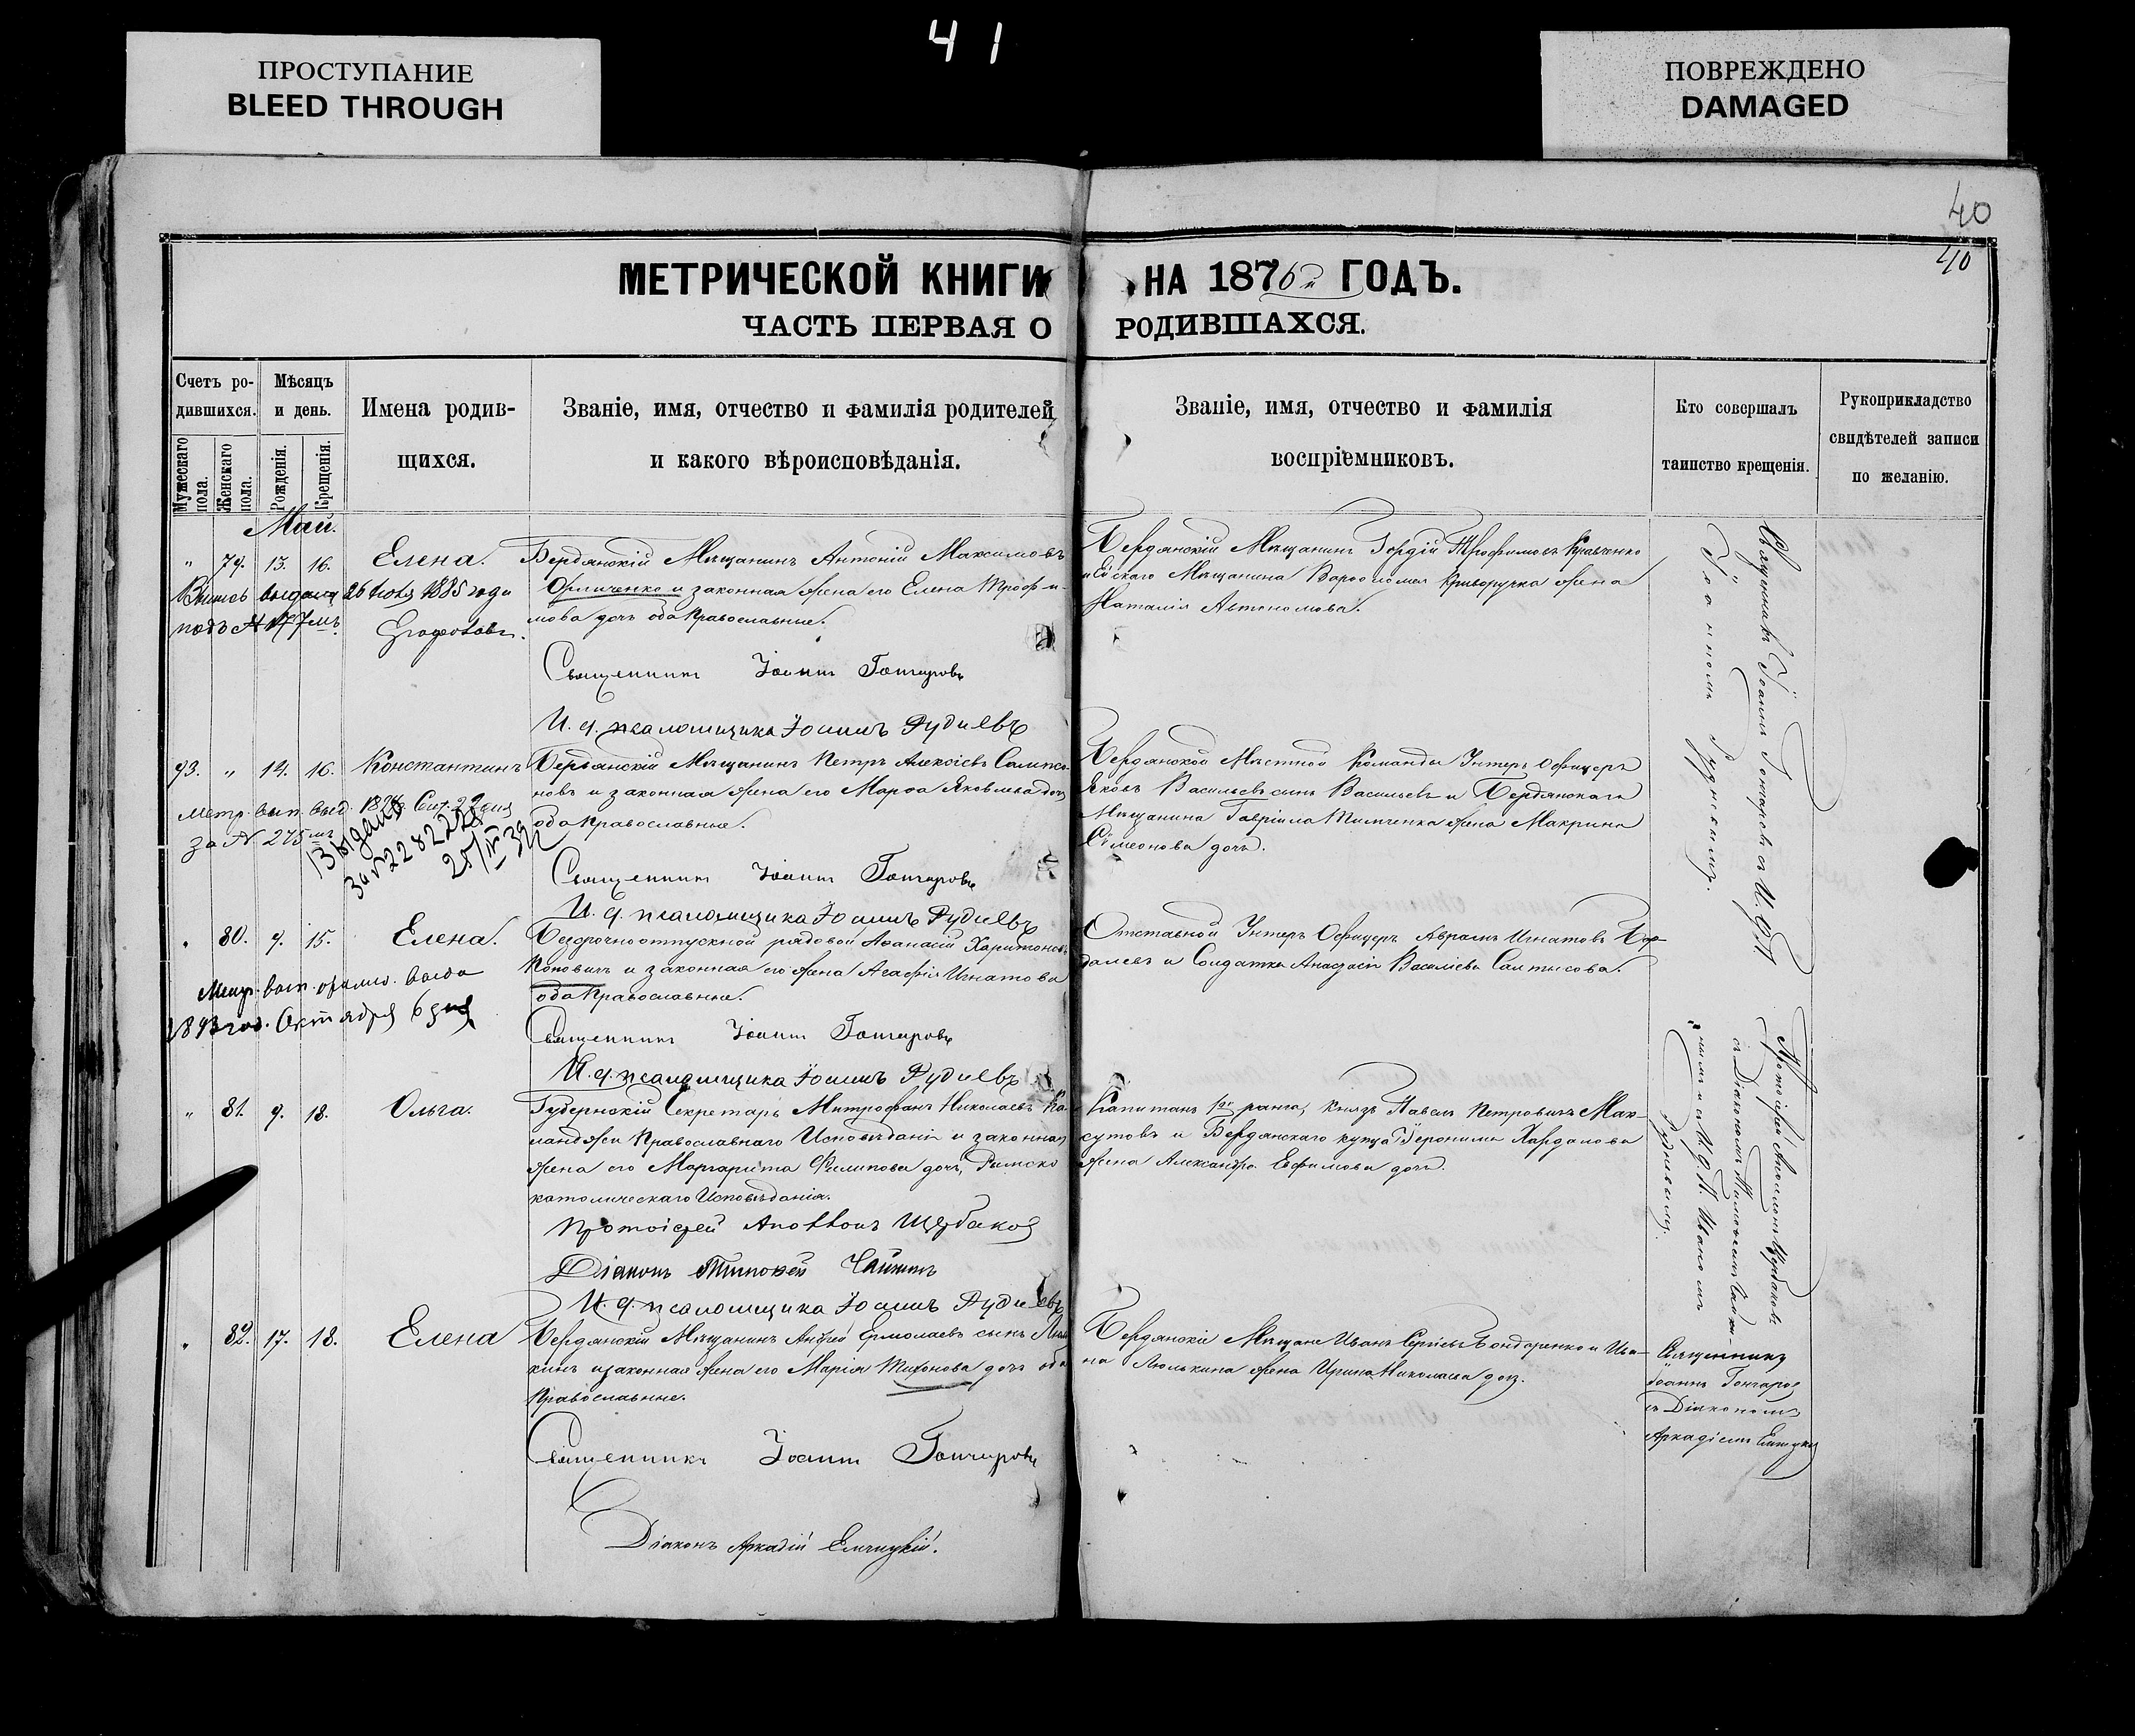 41
ПРОСТУПАНИЕ
BLEED THROUGH
ПОВРЕЖДЕНО
DAMAGED
40
40
МЕТРИЧЕСКОЙ КНИГИ НА 1876й ГОДЪ.
ЧАСТЬ ПЕРВАЯ О РОДИВШАХСЯ.
Счетъ ро-
дившихся.
Мужескаго пола.
Женскаго пола.
Мѣсяцъ
и день.
Рожденія.
Крещенія.
Имена родив-
шихся.
Званіе, имя, отчество и фамилія родителей
и какого вѣроисповѣданія.
Званіе, имя, отчество и фамилія
воспріемниковъ.
Кто совершалъ
таинство крещенія.
Рукоприкладство
свидѣтелей записи
по желанію.
Май.
" 79. 13. 16. Елена.
Выпись выдана 26 1885 года
подъ № 177мъ
Бердянскій Мѣщанинъ Антоній Максимовъ
и законная жена его Елена Трофи-
мова дочь оба Православные.
Священникъ Іоаннъ Гончаровъ
И. д. псаломщика Іоаннъ Рудневъ
Бердянскій Мѣщанинъ Гордій Трофимовъ Кравченко
Мѣщанина Криворучка жена
Наталія Автономова.
93. " 14. 16. Константинъ
Метр. вып. выд.
за № 275мъ
Выдано
за № 2282228
25/IV 39
Бердянскій Мѣщанинъ Петръ Алексіевъ Сампсо-
новъ и законная жена его Марѳа Яковлева дочь
оба Православные.
Священникъ Іоаннъ Гончаровъ
И. д. псаломщика Іоаннъ Рудневъ
Бердянской Мѣстной Команды Унтеръ Офицеръ
Яковъ Васильевъ сынъ Васильевъ и Бердянскаго
Мѣщанина Гавріила Тимченка жена Макрина
Симеонова дочь.
" 80. 9. 15. Елена.
Метр. вып. выда
1893 год. Октября 6 дня
Безсрочноотпускной рядовой Аѳанасій Харитоновъ
Коновичъ и законная его жена Агафія Игнатова
оба Православные.
Священникъ Іоаннъ Гончаровъ
И. д. псаломщика Іоаннъ Рудневъ
Отставной Унтеръ Офицеръ Аврамъ Игнатовъ
и Солдатка Анастасія Василіева Салтысова.
Священникъ Іоаннъ Гончаровъ съ И. д. П
Іоанномъ Рудневымъ.
" 81. 9. 18. Ольга.
Губернскій Секретарь Митрофанъ Николаевъ Ка-
ланджи Православнаго Исповѣданія и законная
жена его Маргарита Филипова дочь, Римско
католическаго Исповѣданія.
Протоіерей Аполлонъ Щербаковъ
Діаконъ Тимоѳей
И. д. псаломщика Іоаннъ Рудневъ
Капитанъ 1го ранга, Князь Павелъ Петровичъ Мак-
сутовъ и Бердянскаго купца Іеронима Хардалова
жена Александра Евфимова дочь.
Протоіерей Аполлонъ Щербаковъ
съ Діакономъ Тимоѳеемъ
и И. д. П. Иваномъ
Рудневымъ.
" 82. 17. 18. Елена
Бердянскій Мѣщанинъ Андрей Ермолаевъ сынъ Люль
кинъ и законная жена его Марія Тихонова дочь оба
Православные.
Священникъ Іоаннъ Гончаровъ
Діаконъ Аркадій
Бердянскіе Мѣщане Иванъ Сергіевъ Бондаренко и Ива-
на Люлькина жена Ирина Николаева дочь.
Священникъ
Іоаннъ Гончаровъ
съ Діакономъ
Аркадіемъ